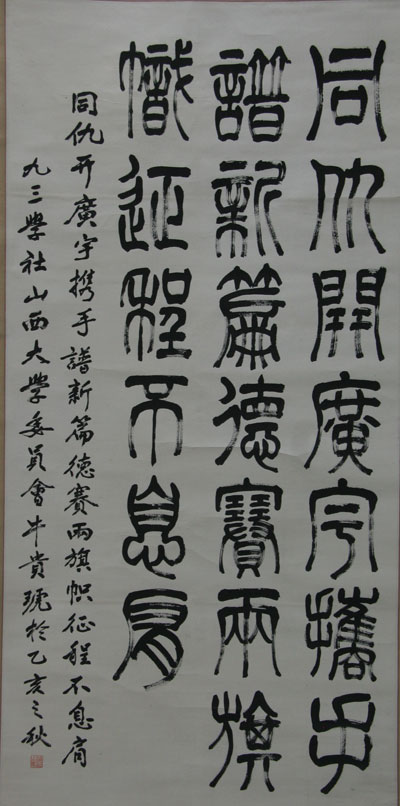 同仇開廣宇攜手
譜新篇德賽兩旗
幟征程不息肩
同仇开廣宇携手譜新篇德赛兩旗帜征程不息肩
九三學社山西大學委員會牛貴琥於乙亥之秋